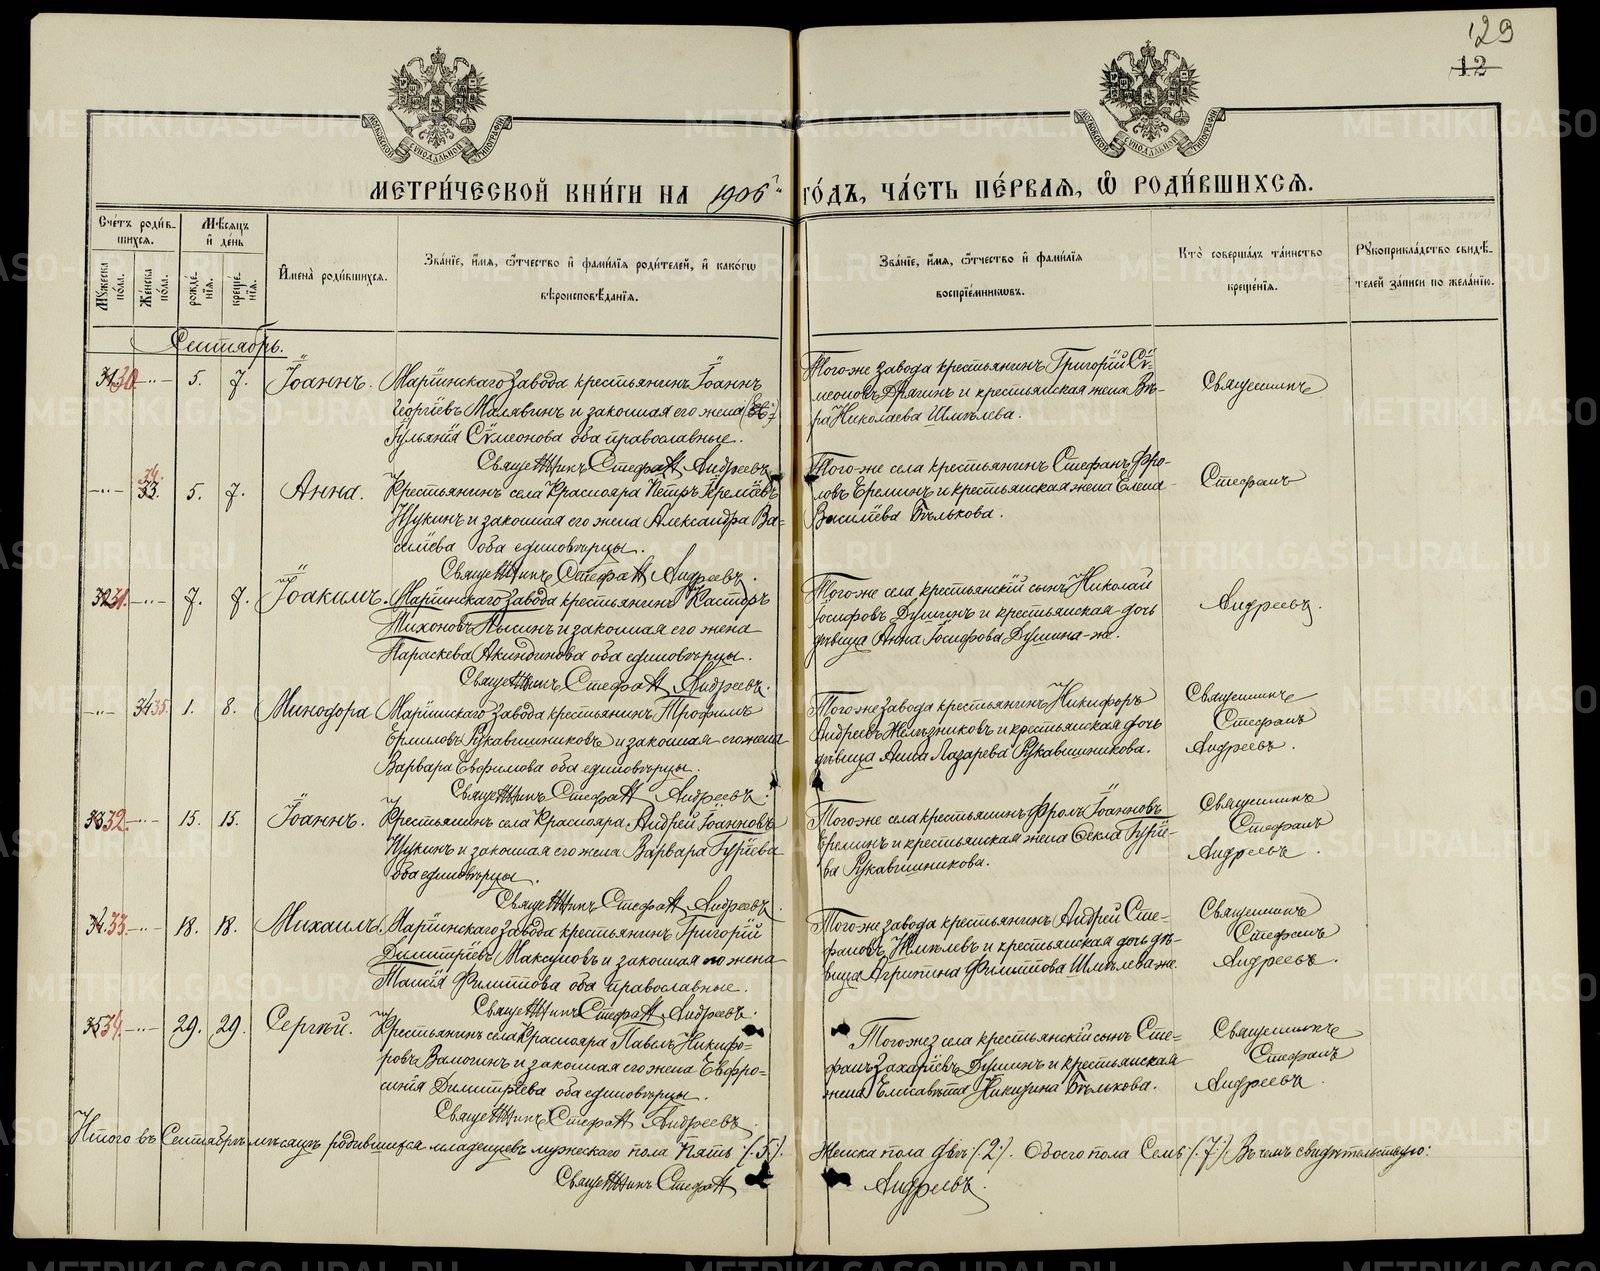 129
12
МЕТРИ́ЧЕСКОЙ КНИ́ГИ НА 1906й ГО́ДЪ, ЧА́СТЬ ПЕ́РВАЯ, Ѽ РОДИ́ВШИХСЯ.
Сче́тъ роди́в-
шихся.
Мѣ́сяцъ
и҆ де́нь
Му́жеска по́ла.
Же́нска по́ла.
рожде́нїя.
креще́нїя.
И҆мена̀ роди́вшихся.
Зва́нїе, и҆́мя, ѻ҆́тчество и҆ фами́лїя роди́телей, и҆ како́гѡ
вѣроисповѣ́данїя.
Зва́нїе, и҆́мя, ѻ҆́тчество и҆ фами́лїя
воспрїе́мникѡвъ.
Кто̀ соверша́лъ та́инство
креще́нїя.
Рꙋкоприкла́дство свидѣ́-
телей за́писи по жела́нїю.
Сентябрь.
31 30. 5. 7. Іоаннъ.
Маріинскаго завода крестьянинъ Іоаннъ
Георгіевъ Малявинъ и законная его жена
Іульянія Сѵмеонова оба православные.
Священникъ Стефанъ Андреевъ
Того-же завода крестьянинъ Григорій Сѵ-
меоновъ Дрягинъ и крестьянская жена Вѣ-
ра Николаева Шмѣлева.
Священникъ
34. 33. 5. 7. Анна.
Крестьянинъ села Краснояра Петръ Іереміевъ
Щукинъ и законная его жена Александра Ва-
силіева оба единовѣрцы.
Священникъ Стефанъ Андреевъ.
Того-же села крестьянинъ Стефанъ Фро-
ловъ Ереминъ и крестьянская жена Елена
Василіева Бѣлькова.
Стефанъ
32 31. 7. 7. Іоакимъ.
Маріинскаго завода крестьянинъ Касторъ
Тихоновъ Лысинъ и законная его жена
Параскева Акиндинова оба единовѣрцы.
Священникъ Стефанъ Андреевъ.
Того-же села крестьянскій сынъ Николай
Іосифовъ Душинъ и крестьянская дочь
дѣвица Анна Іосифова Душина-же.
Андреевъ.
34 35. 1. 8. Минодора
Маріинскаго завода крестьянинъ Трофимъ
Ермиловъ Рукавишниковъ и законная его жена
Варвара Евфимова оба единовѣрцы.
Священникъ Стефанъ Андреевъ.
Того же завода крестьянинъ Никифоръ
Андреевъ Желѣзниковъ и крестьянская дочь
дѣвица Анна Лазарева Рукавишникова.
Священникъ
Стефанъ
Андреевъ.
33 32. 15. 15. Іоаннъ.
Крестьянинъ села Краснояра Андрей Іоанновъ
Щукинъ и законная его жена Варвара Гуріева
оба единовѣрцы.
Священникъ Стефанъ Андреевъ.
Того-же села крестьянинъ Фролъ Іоанновъ
Ереминъ и крестьянская жена Ѳекла Гуріе-
ва Рукавишникова.
Священникъ
Стефанъ
Андреевъ.
34. 33. 18. 18. Михаилъ.
Маріинскаго завода крестьянинъ Григорій
Димитріевъ Максуновъ и законная его жена
Таисія Филиппова оба православные.
Священникъ Стефанъ Андреевъ.
Того-же завода крестьянинъ Андрей Сте-
фановъ Шмѣлевъ и крестьянская дочь дѣ-
вица Агрипина Филиппова Шмѣлева же.
Священникъ
Стефанъ
Андреевъ.
35 34. 29. 29. Сергѣй.
Крестьянинъ села Краснояра Павелъ Никифо-
ровъ Валогинъ и законная его жена Евфро-
синія Димитріева оба единовѣрцы.
Священникъ Стефанъ Андреевъ.
Того-же села крестьянскій сынъ Сте-
фанъ Захаріевъ Душинъ и крестьянская
жена Елисавѣта Никитина Бѣлькова.
Священникъ
Стефанъ
Андреевъ.
Итого въ Сентябрѣ мѣсяцѣ родившихся младенцевъ мужескаго пола пять (5.). Женска пола двѣ (2.). Обоего пола семь (7.) Въ чемъ свидѣтельствую:
Священникъ Стефанъ Андреевъ.
METRIKI.GASO-URAL.RU